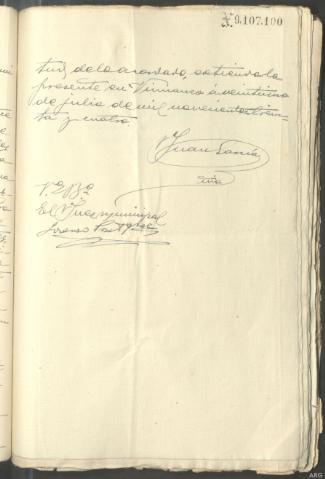 9.107.100
tud de lo acordado, extiendo la
presente en a veintiuno
de julio de mil novecientos trein-
ta y cuatro.
Juan
Vº Bº
El Juez municipal
Lorenzo
ARG